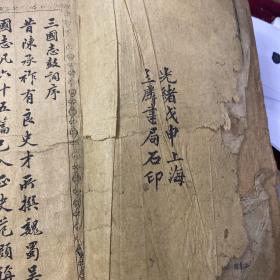 光緒戊申上海
書局石印
三國志鼓詞序
昔陳承祚有良史才所撰魏蜀吳
國志凡六十五篇已入正史范頵